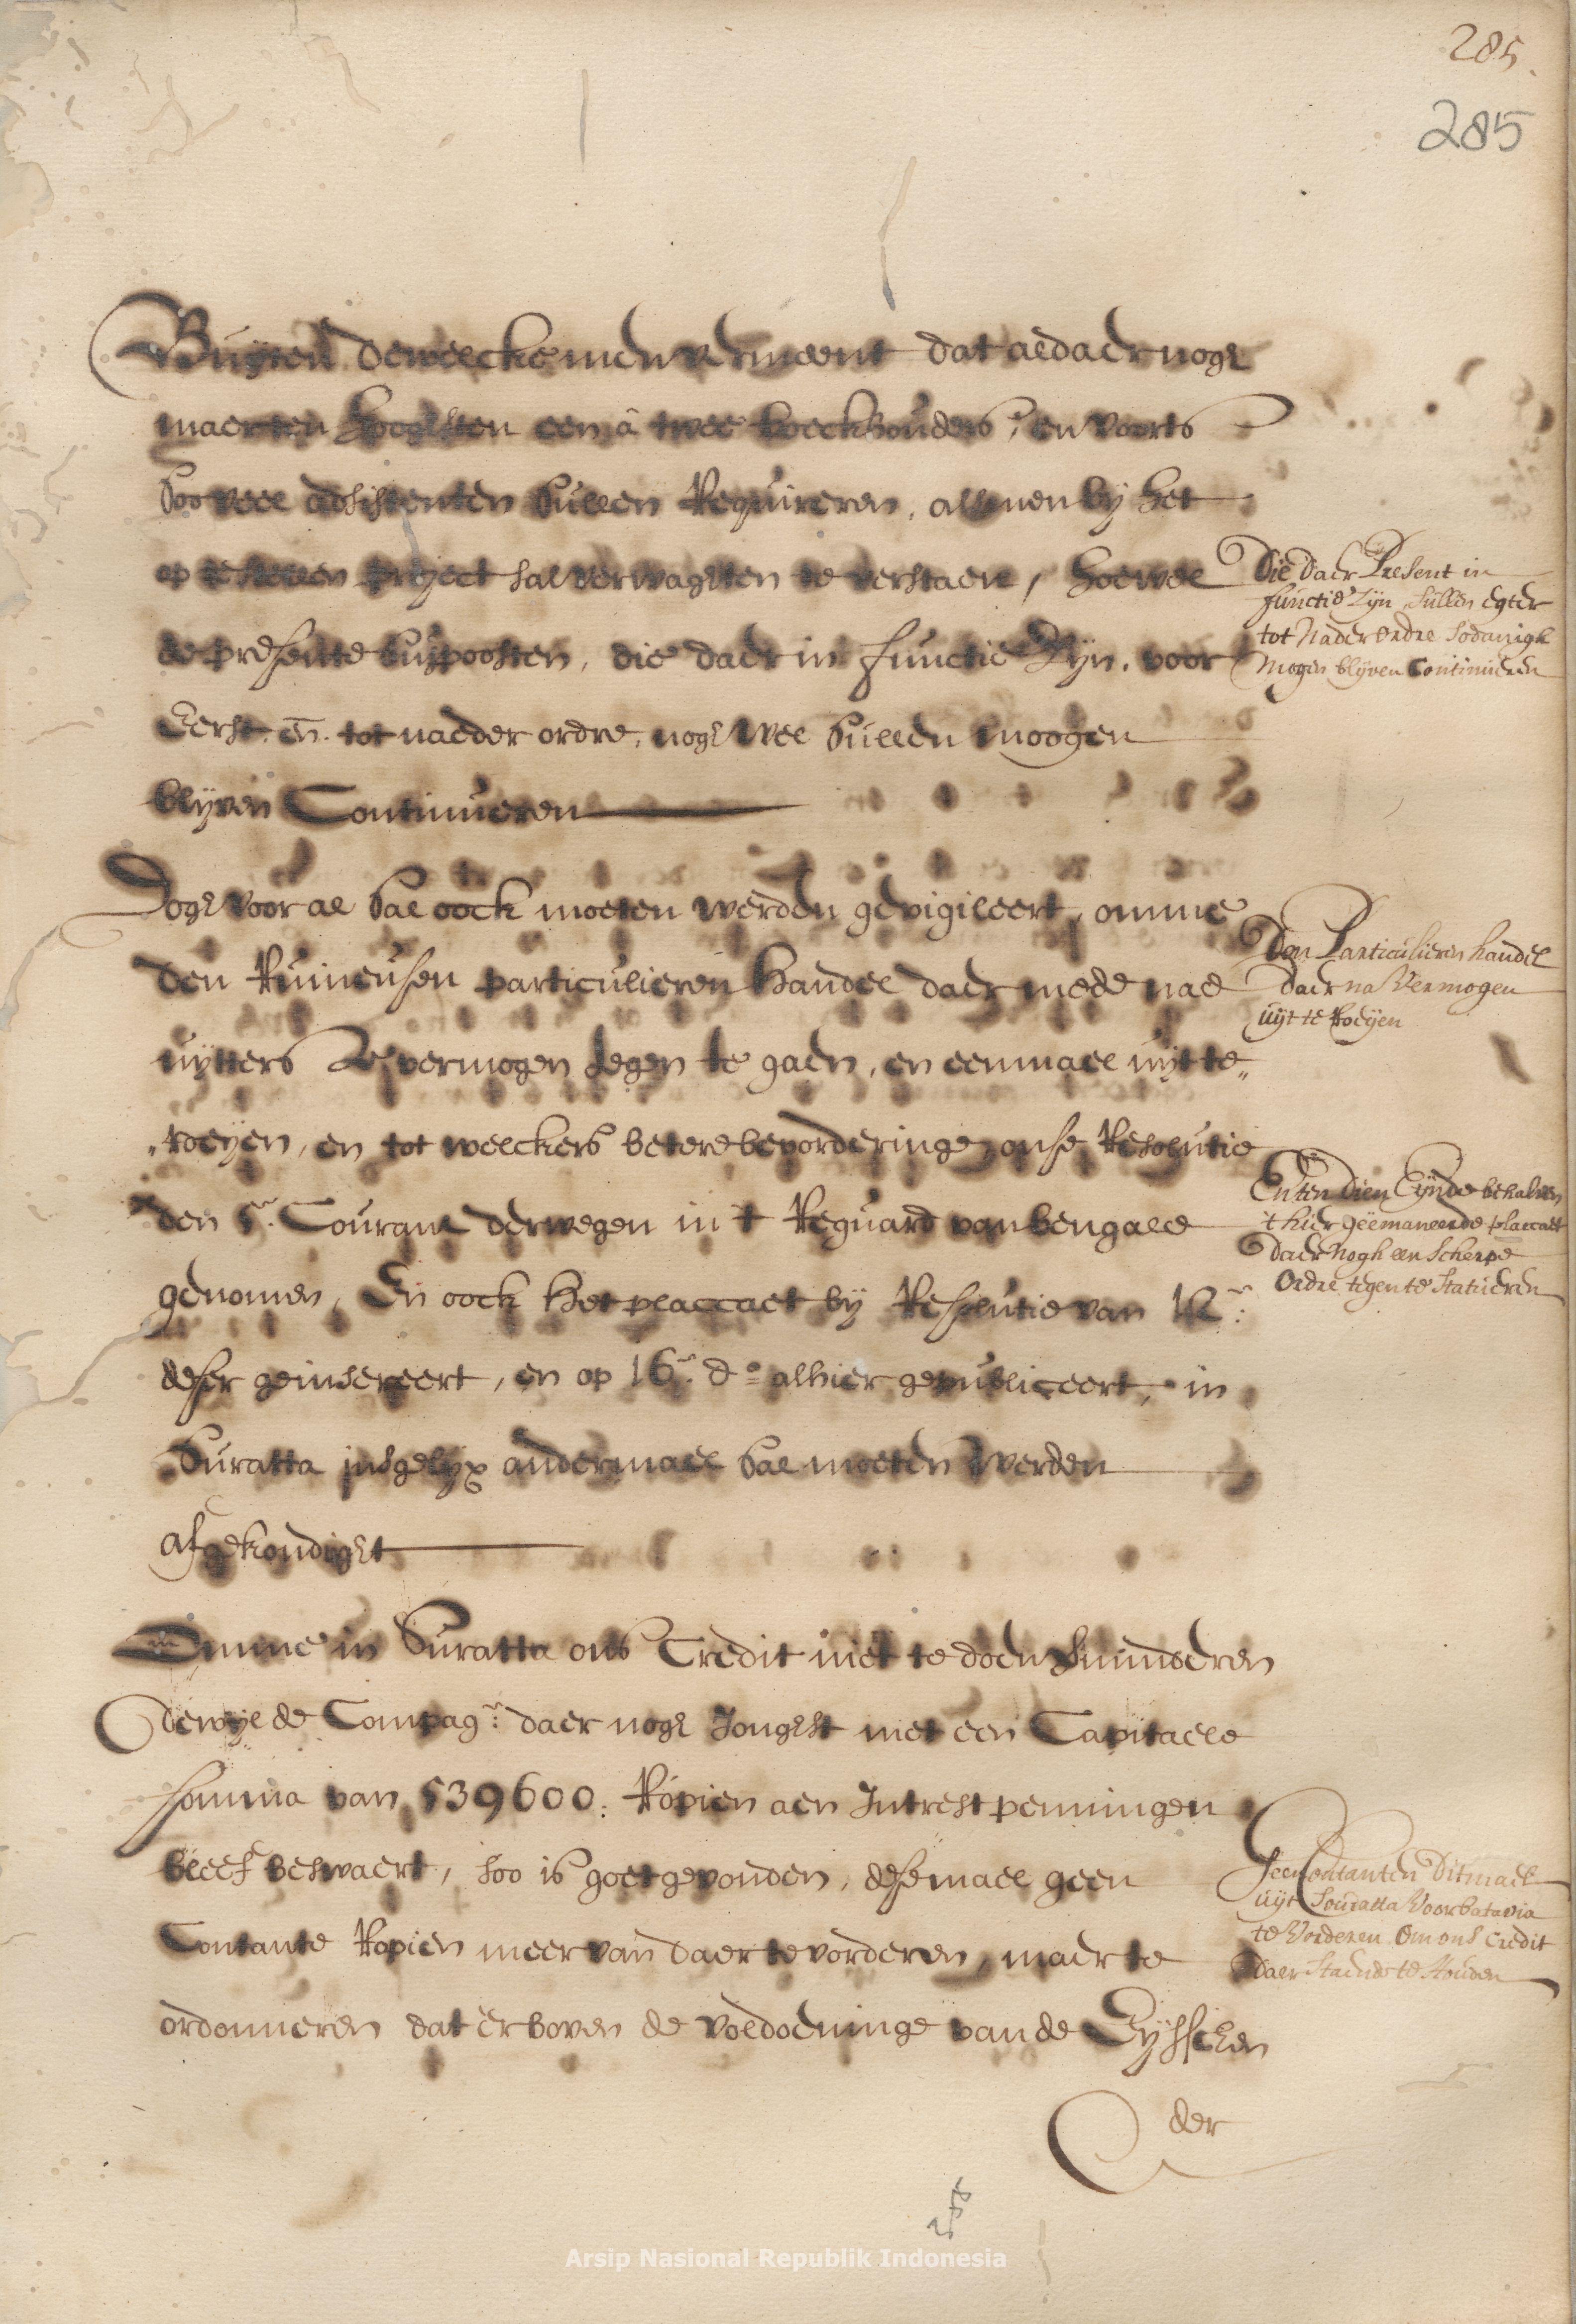 285.
285
Buijten dewelcke men vermeent dat aldaer nogh
maer ten hooghsten een â twee boeckhouders, en voorts
soo veel adsistenten sullen requireren, als men bij het
op te stellen project sal verwaghten te verstaen, hoewel
de presente suppoosten, die daer in functie zijn, voor
Eerst, en tot naeder ordre, nogh wel sullen moogen
blijven Continueren
Die daer Present in
functie zijn, sullen egter
tot nader ordre sodanigh
mogen blijven Continueren
Dogh voor al sal oock moeten werden gevigileert, omme
den Ruineusen particulieren handel daer mede nae
uijtters vermogen tegen te gaen, en eenmael uijt te„
„roeijen, en tot welckers betere bevorderinge onse Resolutie
den 5.n Courant derwegen in 't Reguard van bengale
genomen, En oock het placcaet bij Resolutie van 12.n
deser geinsereert, en op 16.n d.o alhier gepubliceert, in
Suratta insgelijx andermael sal moeten werden
afgekondight
Den Particulieren handel
daer na Vermogen
uijt te Roeijen
En ten dien Eijnde behalven
't hier geëmaneerde placcaet
daer nogh een scherpe
ordre tegen te statueren
Omme in Suratta ons Credit niet te doen verminderen
dewijl de Compag.e daer nogh Jonghst met een Capitaele
somma van 539600: Ropien aen Intrest penningen
bleef beswaert, soo is goet gevonden, desemael geen
Contante Ropien meer van daer te vorderen, maer te
ordonneren dat er boven de voldoeninge van de Eijsschen
Geen Contanten ditmael
uijt Souratta voor batavia
te vorderen om ons Credit
daer staende te houden
der
Arsip Nasional Republik Indonesia